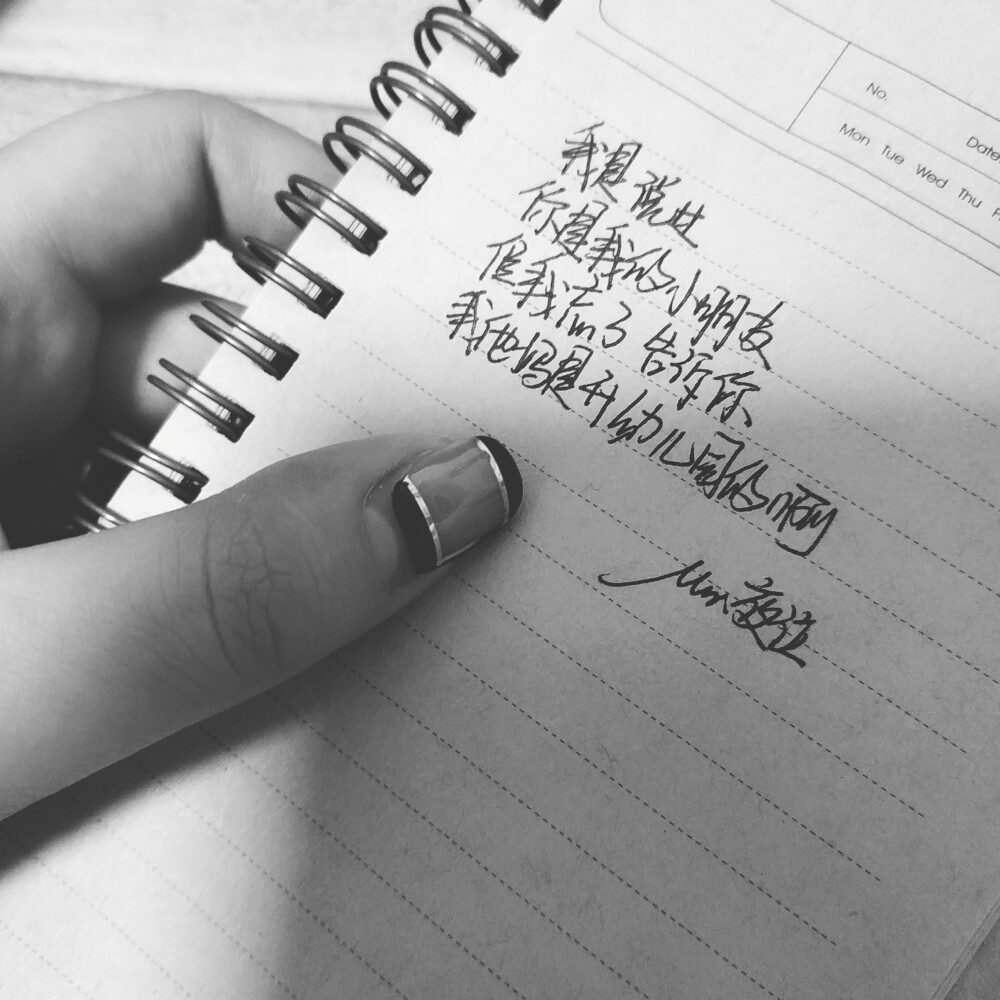 No.
Date
Mon Tue Wed Thu F
我是说过
你是我的小朋友
但我忘了告诉你
我他妈是开幼儿园的啊
Mr.夜注